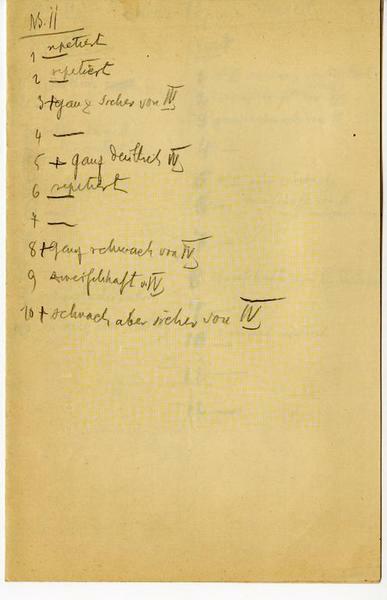 No. 11
1 repetiert
2 repetiert
3 + ganz sicher von IV
4 —
5 + ganz deutlich IV
6 repetiert
7 —
8 + ganz schwach von IV
9 zweifelhaft v IV
10 + schwach aber sicher von IV